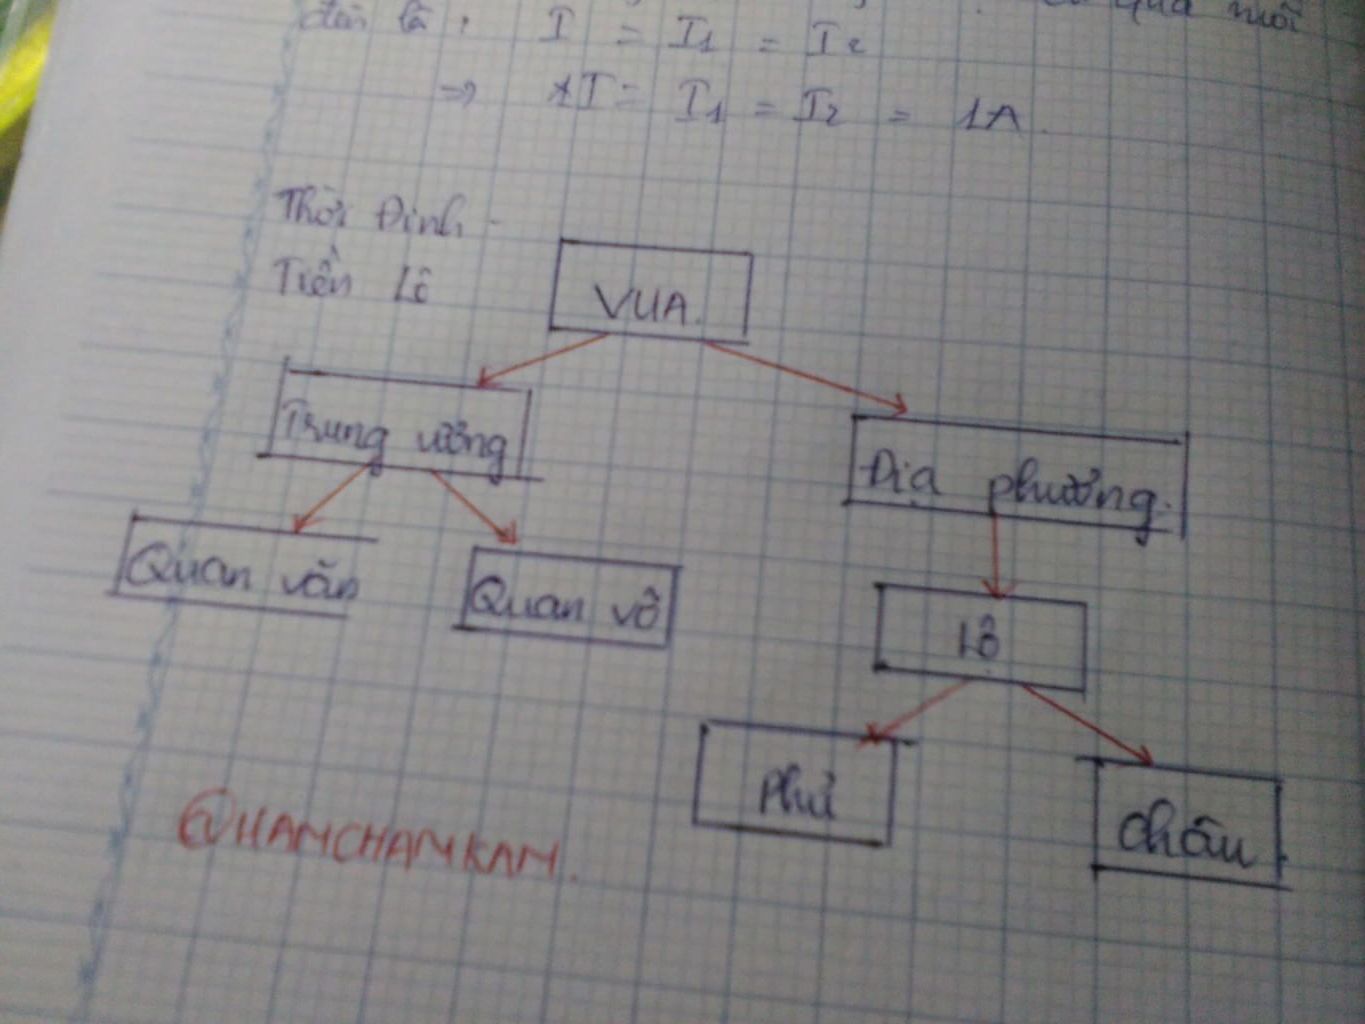 là : I = I1 = I2
qua mỗi
=> I = I1 = I2 = 1A
Thời Đinh -
Tiền Lê
VUA.
Trung ương
Địa phương.
Quan văn
Quan võ
Lộ
Phủ
Châu
@HAMCHAMKAM.